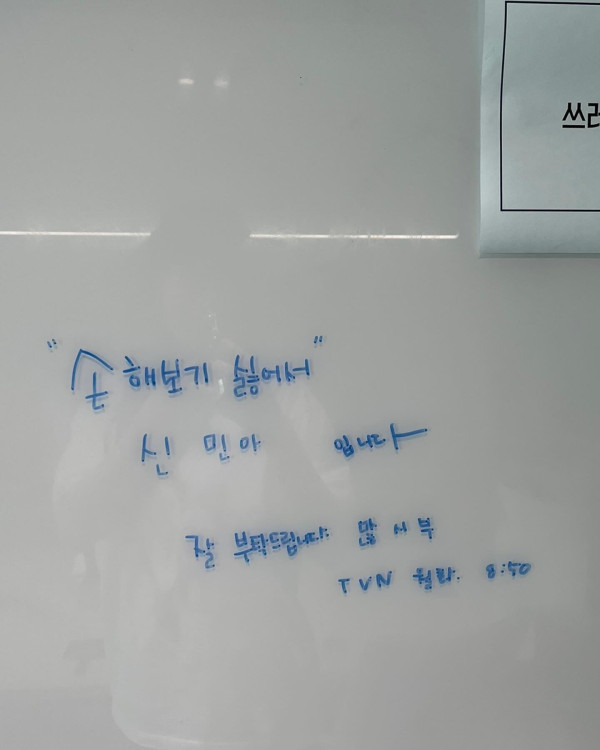 쓰러
"손해보기 싫어서"
신 민아 입니다
잘 부탁드립니다. 많 시 부
TVN 월화. 8:50